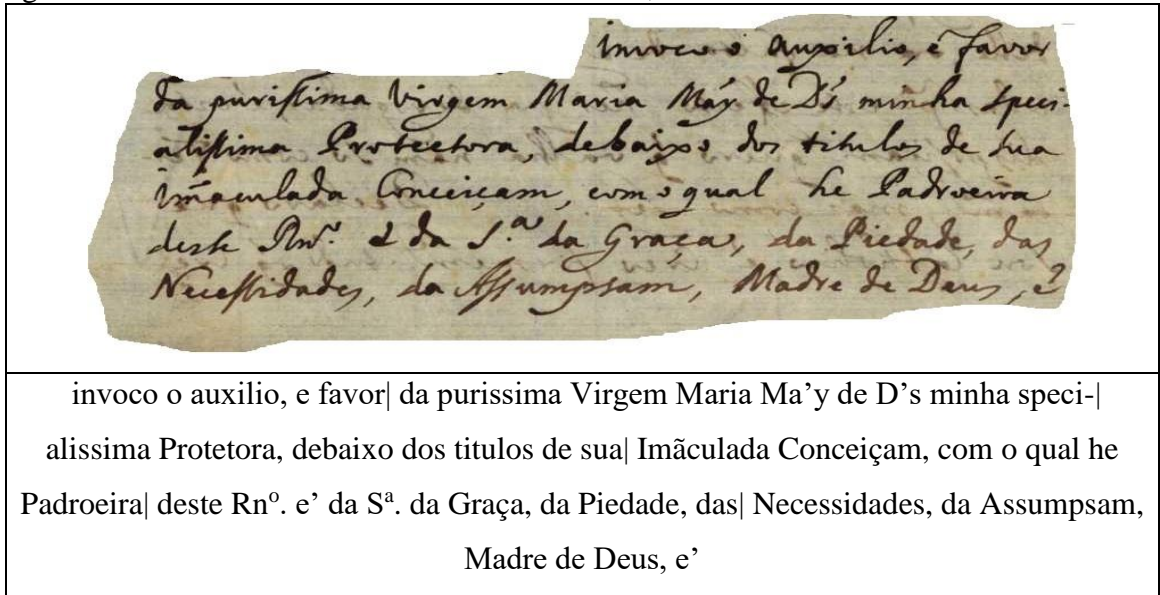 invoco o auxilio, e favor
da purissima Virgem Maria Máy de D's minha speci-
alissima Protectora, debaixo dos titulos de sua
Imãculada Conceiçam, com o qual he Padroeira
deste Rnº. e da S.ª da Graça, da Piedade, das
Necessidades, da Assumpsam, Madre de Deus, e
invoco o auxilio, e favor| da purissima Virgem Maria Ma’y de D’s minha speci-|
alissima Protetora, debaixo dos titulos de sua| Imãculada Conceiçam, com o qual he
Padroeira| deste Rnº. e’ da Sª. da Graça, da Piedade, das| Necessidades, da Assumpsam,
Madre de Deus, e’